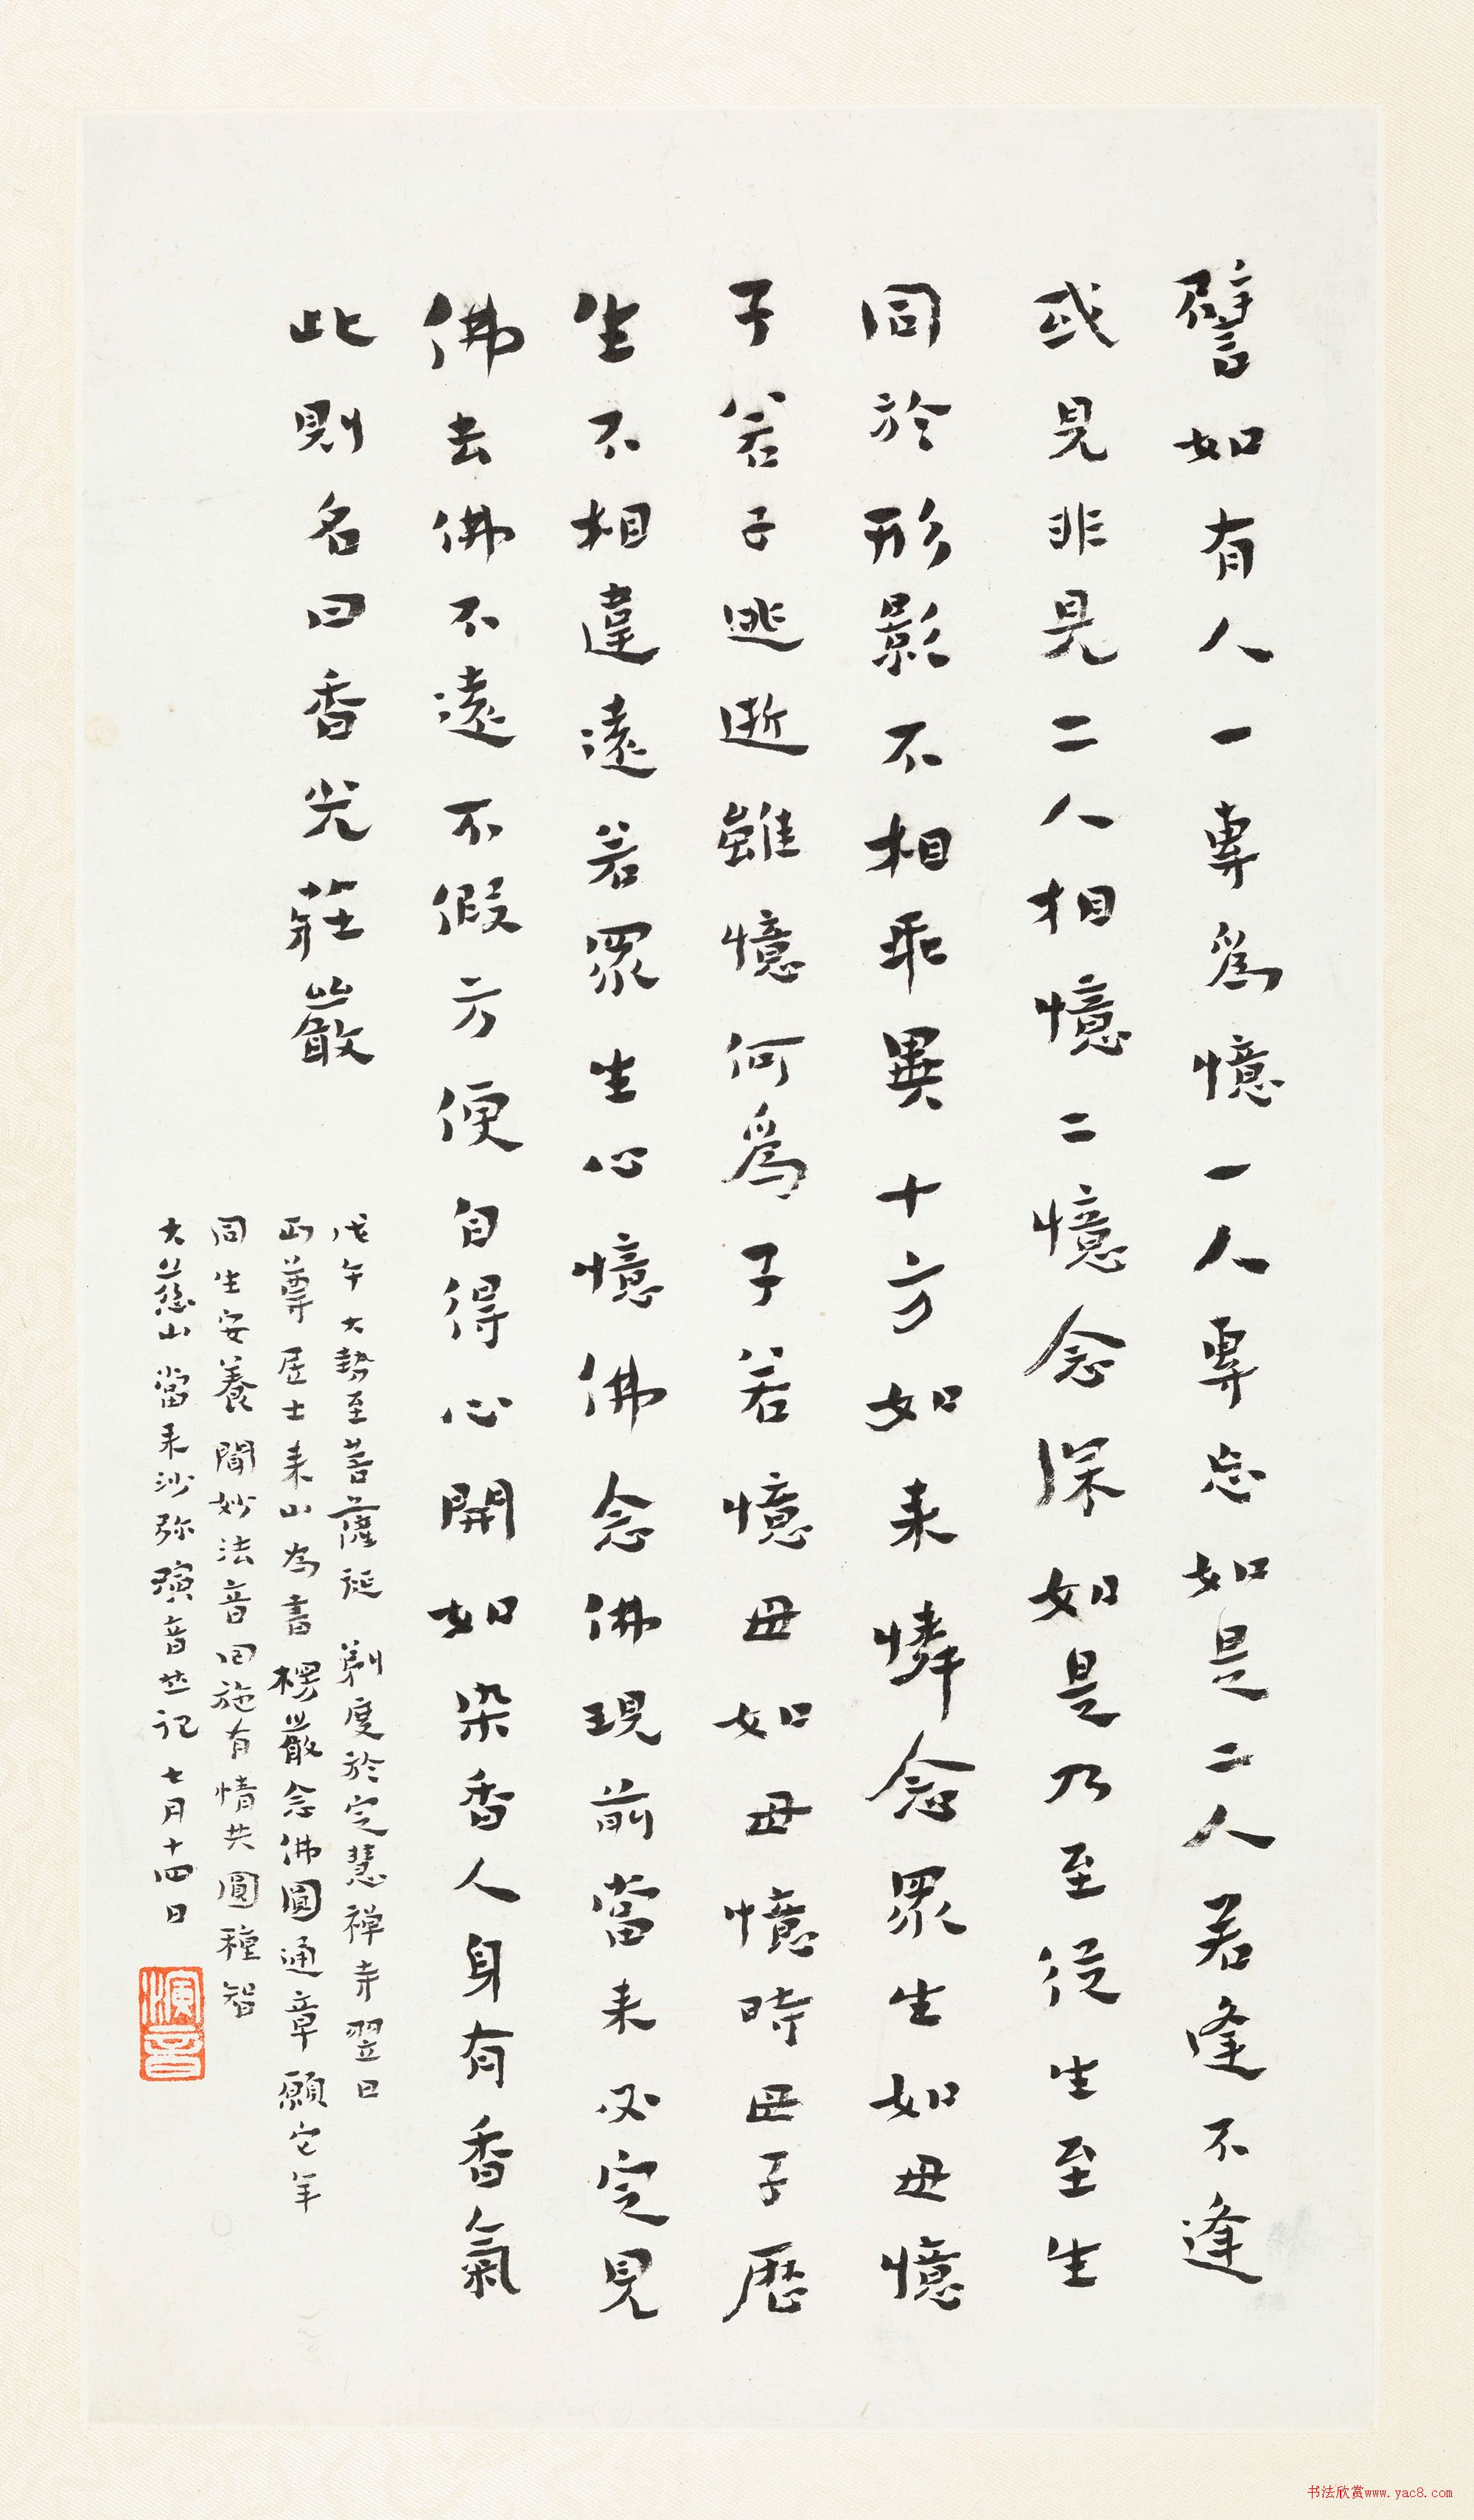 譬如有人一專爲憶一人專忘如是二人若逢不逢
或見非見二人相憶二憶念深如是乃至從生至生
同於形影不相乖異十方如来憐念眾生如母憶
子若子逃逝雖憶何爲子若憶母如母憶時母子歷
生不相違遠若眾生心憶佛念佛現前當来必定見
佛去佛不遠不假方便自得心開如染香人身有香氣
此則名曰香光莊嚴
戊午大勢至菩薩誕剃度於定慧禅寺翌日
丏尊居士来山為書楞嚴念佛圓通章願它年
同生安養聞妙法音回施有情共圓種智
大慈山當来沙弥演音並记七月十四日
演音
书法欣赏www.yac8.com